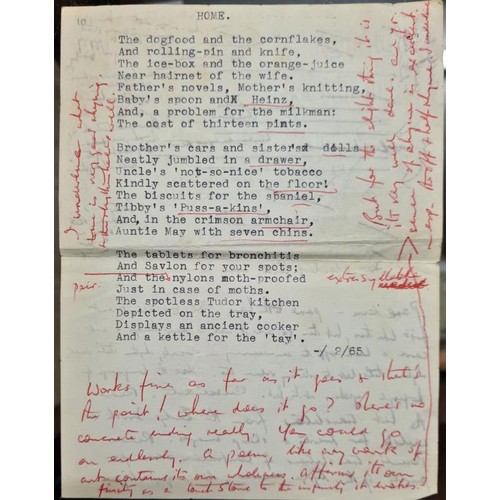 10
HOME.
The dogfood and the cornflakes,
And rolling-pin and knife,
The ice-box and the orange-juice
Near hairnet of the wife.
Father's novels, Mother's knitting,
Baby's spoon andX Heinz,
And, a problem for the milkman:
The cost of thirteen pints.
Brother's cars and sister'sx dolls
Neatly jumbled in a drawer,
Uncle's 'not-so-nice' tobacco
Kindly scattered on the floor!
The biscuits for the spaniel,
Tibby's 'Puss-a-kins',
And, in the crimson armchair,
Auntie May with seven chins.
The tablets for bronchitis
And Savlon for your spots;
And the nylons moth-proofed
Just in case of moths.
The spotless Tudor kitchen
Depicted on the tray,
Displays an ancient cooker
And a kettle for the 'tay'.
-/ 2/65
pair.
extra syllable
needed
But for the slight thing it is
it's very well done, and yr
sense of rhyme is excellent
Works fine as far as it goes & that's
the point! where does it go? There's no
concrete ending really. You could go
on endlessly. A poem, like any work of
art contains its own wholeness, affirming its own
finity as a touchstone to the infinity it evokes.